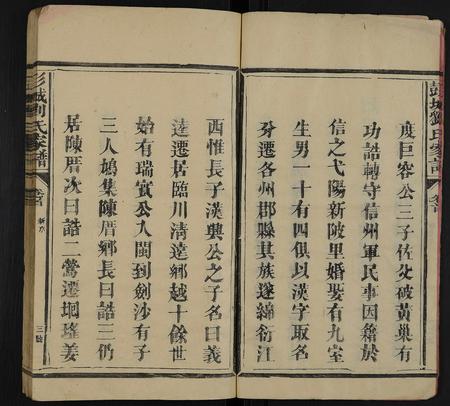 彭城劉氏家譜 卷首
度巨容公三子佐父破黃巢有
功誥轉守信州軍民事因籍於
信之弋陽新陂里婚娶有九室
生男一十有四俱以漢字取名
分遷各州郡縣其族遂綿衍江
西惟長子漢興公之子名曰義
逵遷居臨川清遠鄉越十餘世
始有瑞實公入閩到劍沙有子
三人鳩集陳厝鄉長曰誥三仍
居陳厝次曰誥二鶯遷垌隆姜
彭城劉氏家譜 卷首 新序 三